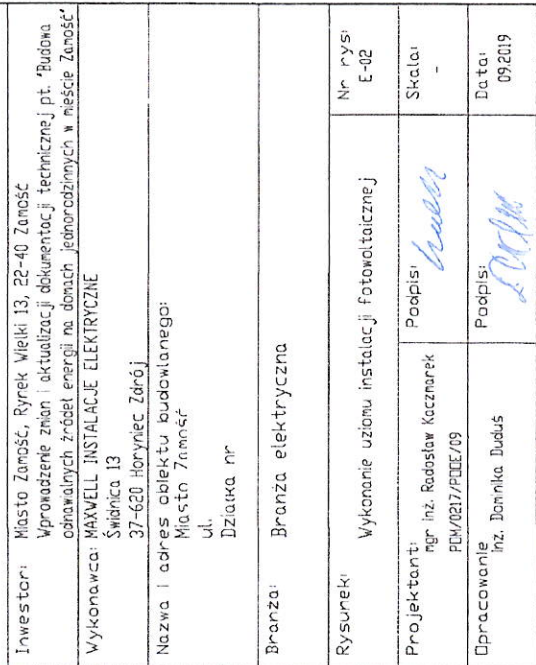 Inwestor: Miasto Zamość, Rynek Wielki 13, 22-40 Zamość
Wprowadzenie zmian i aktualizacji dokumentacji technicznej pt. "Budowa
odnawialnych źródeł energii na domach jednorodzinnych w mieście Zamość"
Wykonawca: MAXWELL INSTALACJE ELEKTRYCZNE
Świdnica 13
37-620 Horyniec Zdrój
Nazwa i adres obiektu budowlanego:
Miasto Zamość
ul.
Działka nr
Branża: Branża elektryczna
Rysunek: Wykonanie uziomu instalacji fotowoltaicznej
Nr rys:
E-02
Projektant:
mgr inż. Radosław Kaczmarek
POM/0217/POOE/09
Podpis:
Skala:
-
Opracowanie
inż. Dominika Duduś
Podpis:
Data:
09.2019